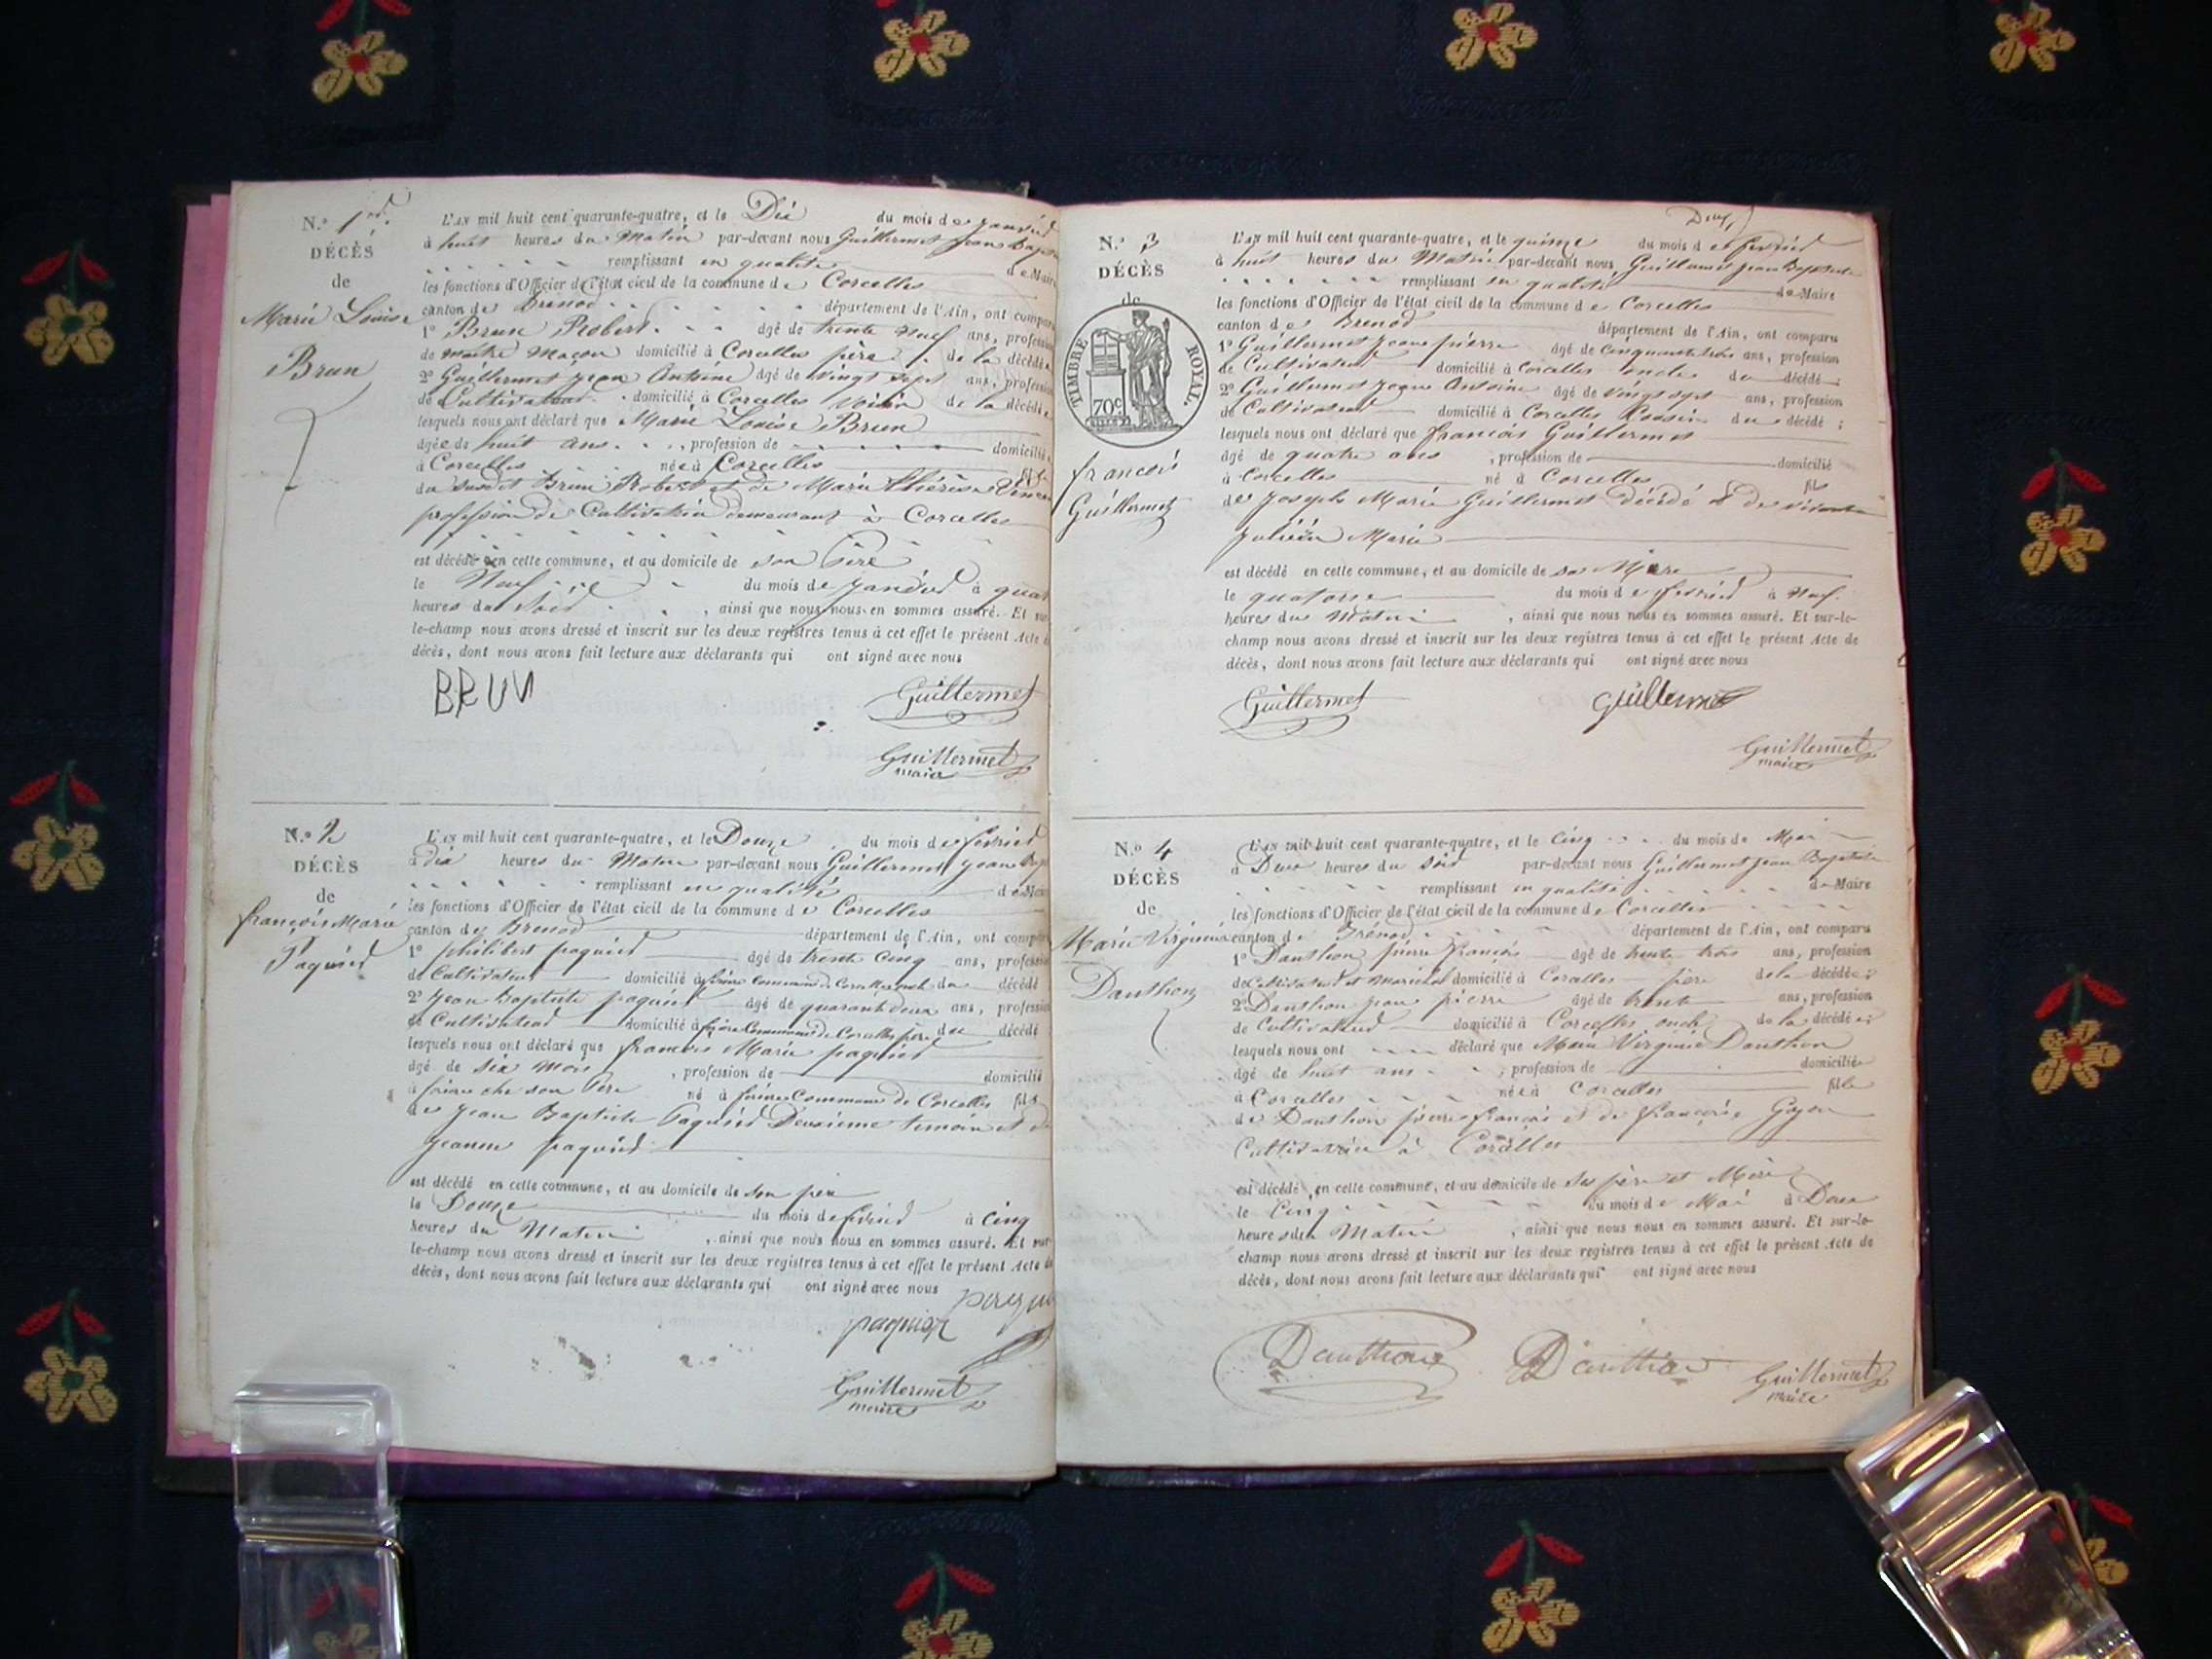 N.º 1er.
DÉCÈS
de
Marie Louise
Brun
L'AN mil huit cent quarante-quatre, et le Dix du mois de janvier
à huit heures du Matin par-devant nous Guillermet Jean Bapt
remplissant en qualité de Maire
les fonctions d'Officier de l'état civil de la commune de Corcelles
canton de Brenod département de l'Ain, ont comparu
1º Brun Robert agé de trente neuf ans, profession
de maitre maçon domicilié à Corcelles père de la décédée
2º Guillermet Jean Antoine âgé de vingt sept ans, profession
de Cultivateur domicilié à Corcelles voisin de la décédée
lesquels nous ont déclaré que Marie Louise Brun
agée de huit ans , profession de domiciliée
à Corcelles née à Corcelles fille
du susdit Brun Robert et de Marie thérèse
profession de Cultivatrice demeurant à Corcelles
est décédée en cette commune, et au domicile de son Père
le Neuf du mois de janvier à quat
heures du Soir , ainsi que nous nous en sommes assuré. Et sur
le-champ nous avons dressé et inscrit sur les deux registres tenus à cet effet le présent Acte de
décès, dont nous avons fait lecture aux déclarants qui ont signé avec nous
BRUN Guillermet
Guillermet
maire
N.º 2
DÉCÈS
de
françois Marie
Paquier
L'AN mil huit cent quarante-quatre, et le Douze du mois de fevrier
à dix heures du Matin par-devant nous Guillermet jean Bap
remplissant en qualité de Maire
les fonctions d'Officier de l'état civil de la commune de Corcelles
canton de Brenod département de l'Ain, ont comparu
1º philibert paquier agé de trente cinq ans, profession
de Cultivateur domicilié à commune de Corcelles du décédé
2º Jean Baptiste paquier âgé de quarante deux ans, profession
de Cultivateur domicilié à Commune de Corcelles père du décédé
lesquels nous ont déclaré que francois Marie paquier
âgé de six mois , profession de domicilié
à che son Père né à Commune de Corcelles fils
de Jean Baptiste Paquier Deuxieme temoin et de
Jeanne paquier
est décédé en cette commune, et au domicile de son père
le Douze du mois de fevrier à cinq
heures du Matin , ainsi que nous nous en sommes assuré. Et sur
le-champ nous avons dressé et inscrit sur les deux registres tenus à cet effet le présent Acte de
décès, dont nous avons fait lecture aux déclarants qui ont signé avec nous
paquier
Guillermet
maire
Deux
N.º 3
DÉCÈS
de
TIMBRE ROYAL.
70c
francois
Guillermet
L'AN mil huit cent quarante-quatre, et le quinze du mois de fevrier
à huit heures du Matin par-devant nous Guillermet jean Baptiste
remplissant en qualité de Maire
les fonctions d'Officier de l'état civil de la commune de Corcelles
canton de Brenod département de l'Ain, ont comparu
1º Guillermet Jean pierre âgé de cinquante trois ans, profession
de Cultivateur domicilié à Corcelles oncle du décédé;
2º Guillermet Jean Antoine âgé de vingt sept ans, profession
de Cultivateur domicilié à Corcelles Cousin du décédé;
lesquels nous ont déclaré que francois Guillermet
âgé de quatre ans , profession de domicilié
à Corcelles né à Corcelles fils
de Joseph Marie Guillermet décédé et de vivante
Marie
est décédé en cette commune, et au domicile de sa Mère
le quatorse du mois de fevrier à neuf
heures du Matin , ainsi que nous nous en sommes assuré. Et sur-le-
champ nous avons dressé et inscrit sur les deux registres tenus à cet effet le présent Acte de
décès, dont nous avons fait lecture aux déclarants qui ont signé avec nous
Guillermet guillermet
Guillermet
maire
N.º 4
DÉCÈS
de
Marie Virginie
Danthon
L'AN mil huit cent quarante-quatre, et le cinq du mois de Mai
à Deux heures du soir par-devant nous Guillermet Jean Baptiste
remplissant en qualité de Maire
les fonctions d'Officier de l'état civil de la commune de Corcelles
canton de Brénod département de l'Ain, ont comparu
1º Danthon pierre françois âgé de trente trois ans, profession
de Cultivateur et Maréchal domicilié à Corcelles père de la décédée;
2º Danthon jean pierre âgé de trente ans, profession
de Cultivateur domicilié à Corcelles oncle de la décédée;
lesquels nous ont déclaré que Marie Virginie Danthon
âgé de huit ans , profession de domiciliée
à Corcelles née à Corcelles fille
de Danthon pierre françois et de françoise Goyon
Cultivatrice à Corcelles
est décédé en cette commune, et au domicile de ses père et Mère
le Cinq du mois de Mai à Deux
heures du Matin , ainsi que nous nous en sommes assuré. Et sur-le-
champ nous avons dressé et inscrit sur les deux registres tenus à cet effet le présent Acte de
décès, dont nous avons fait lecture aux déclarants qui ont signé avec nous
Danthon Danthon Guillermet
maire